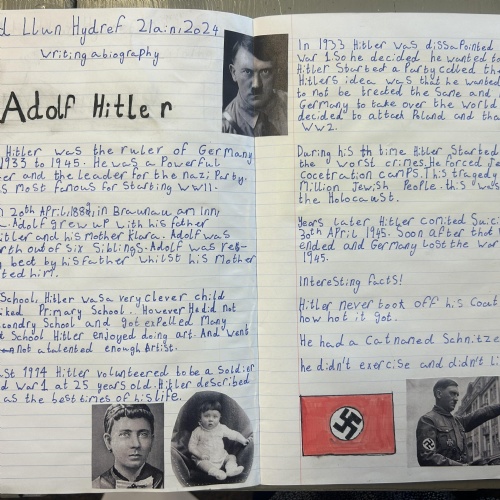 d Llun Hydref 21ain, 2024
Writing a biography
Adolf Hitler
Hitler was the ruler of Germany
1933 to 1945. He was a Powerful
er and the leader for the nazi Party.
s most famous for Starting WWII.
n 20th April, 1889, in Braunau am Inn,
a. Adolf grew up with his father
itler and his mother Klara. Adolf was
rth out of six Siblings. Adolf was reg-
y beet by his father whilst his Mother
ted him.
School, Hitler was a very clever child
iked Primary School. However He did not
econdry School and got expelled Many
t School Hitler enjoyed doing art. And went
not a talented enough Artist.
ust 1914 Hitler volunteered to be a Soldier
d War 1 at 25 years old. Hitler described
as the best times of his life.
In 1933 Hitler was dissapointed
War 1. So he decided he wanted to
Hitler Started a Party called the
Hitlers idea was that he wanted
to not be treated the Same and
Germany to take over the World
decided to attack Poland and tha
WW2.
During his th time Hitler Started
the worst crimes. He forced Je
cocetration camps. This tragedy
Million Jewish People. this was
the Holocaust.
Years later Hitler comited Suici
30th April, 1945. Soon after that
ended and Germany lost the War
1945.
Interesting facts!
Hitler never took off his Coat
how hot it got.
He had a Cat named Schnitze
he didn't exercise and didn't li